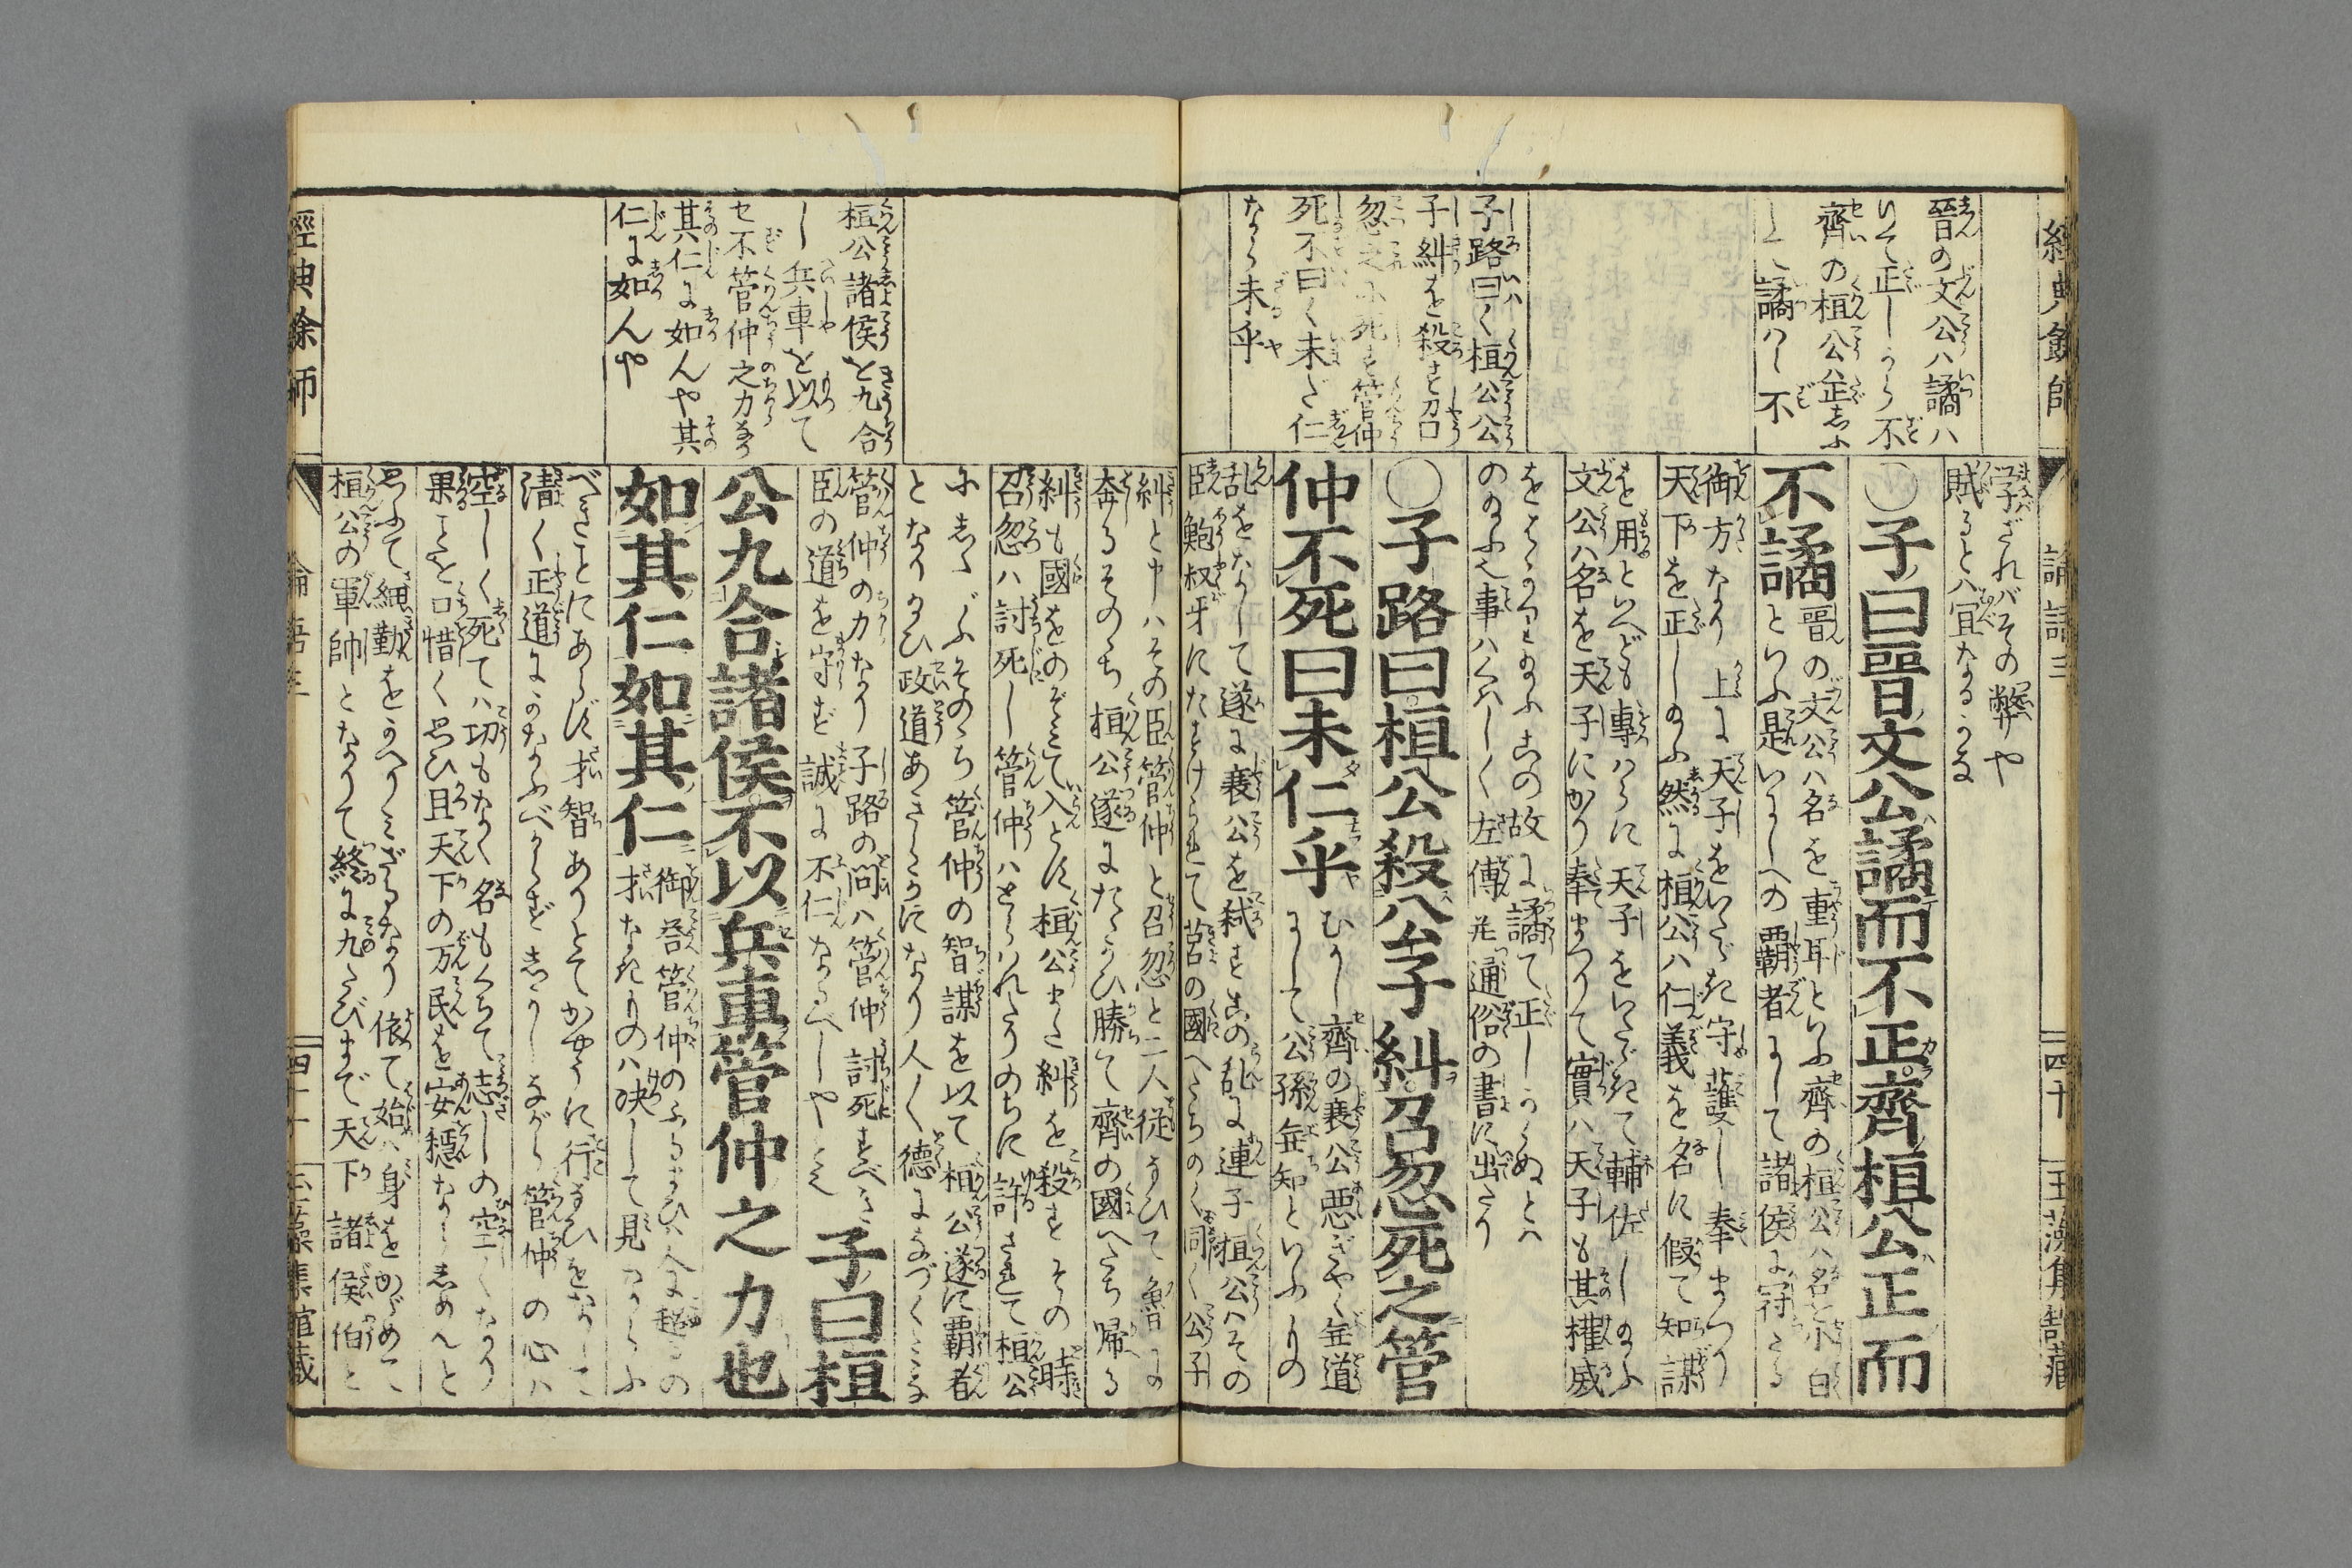 經典餘師
論語三
四十
玉藻集舘藏
晉の文公ハ譎
いて正しから不
齊の桓公ハ正しふ
して譎ハし不
子路曰く桓公公
子糾を殺す召
忽之に死す管仲
死不曰く未だ仁
なら未乎
学ざれバその弊や
賊ると八宜なるかな
〇子曰晋文公譎而不正齊桓公正而
不譎
晋の文公ハ名を重耳といふ齊の桓公ハ名を小白
といふ是いにしへの覇者にして諸侯に冠たる
御方なり上に天子をいたゞき守護し奉まつり
天下を正しのふ然に桓公ハ仁義を名に假て知謀
を用といへども專はらに天子をいたゞきて輔佐しのふ
文公ハ名を天子にかり奉まつりて實ハ天子も其權威
のふ也事ハくハしく左傳并通俗の書に出たり
〇子路曰桓公殺公子糾召忽死之管
仲不死曰未仁乎
むかし齊の襄公惡ぎやく無道
にして公孫無知といふもの
乱をなして遂に襄公を弑すこの乱に連子桓公ハその
臣鮑叔牙にたすけられて莒の國へたちのく同く公子
糾と申ハその臣管仲と召忽と二人従うひて魯に
奔るそのゝち桓公遂にたゝかひ勝て齊の國へたち帰る
糾も國をのぞミて入とす桓公また糾を殺すその時
召忽ハ討死し管仲ハとらハれたりのちに許されて桓公
にしたがふそのゝち管仲の智謀を以て桓公遂に覇者
となり給ひ政道あきらかになり人々德になづくことミな
管仲の力なり子路の問ハ管仲討死すべき
臣の道を守ず誠に不仁なるべしやと也
子曰桓
公九合諸侯不以兵車管仲之力也
如其仁如其仁
御荅管仲のふるまひ人に越るの
才なきものハ决して見ならふ
べきことにあらず才智ありとてかやうに行ひをなして
清く正道にかなふべからずしかしながら管仲の心ハ
空しく死てハ功もなく名もくちて志しの空くなり
果ことを口惜く思ひ且天下の万民を安穏ならしめんと
思ふて細勤をかへりミざるなり依て始ハ身をかゞめて
桓公の軍帥となりて終に九たびまで天下諸侯伯と
桓公諸侯を九合
し兵車を以て
セ不管仲之力なり
其仁に如んや其
仁に如んや
經典餘師
論語三